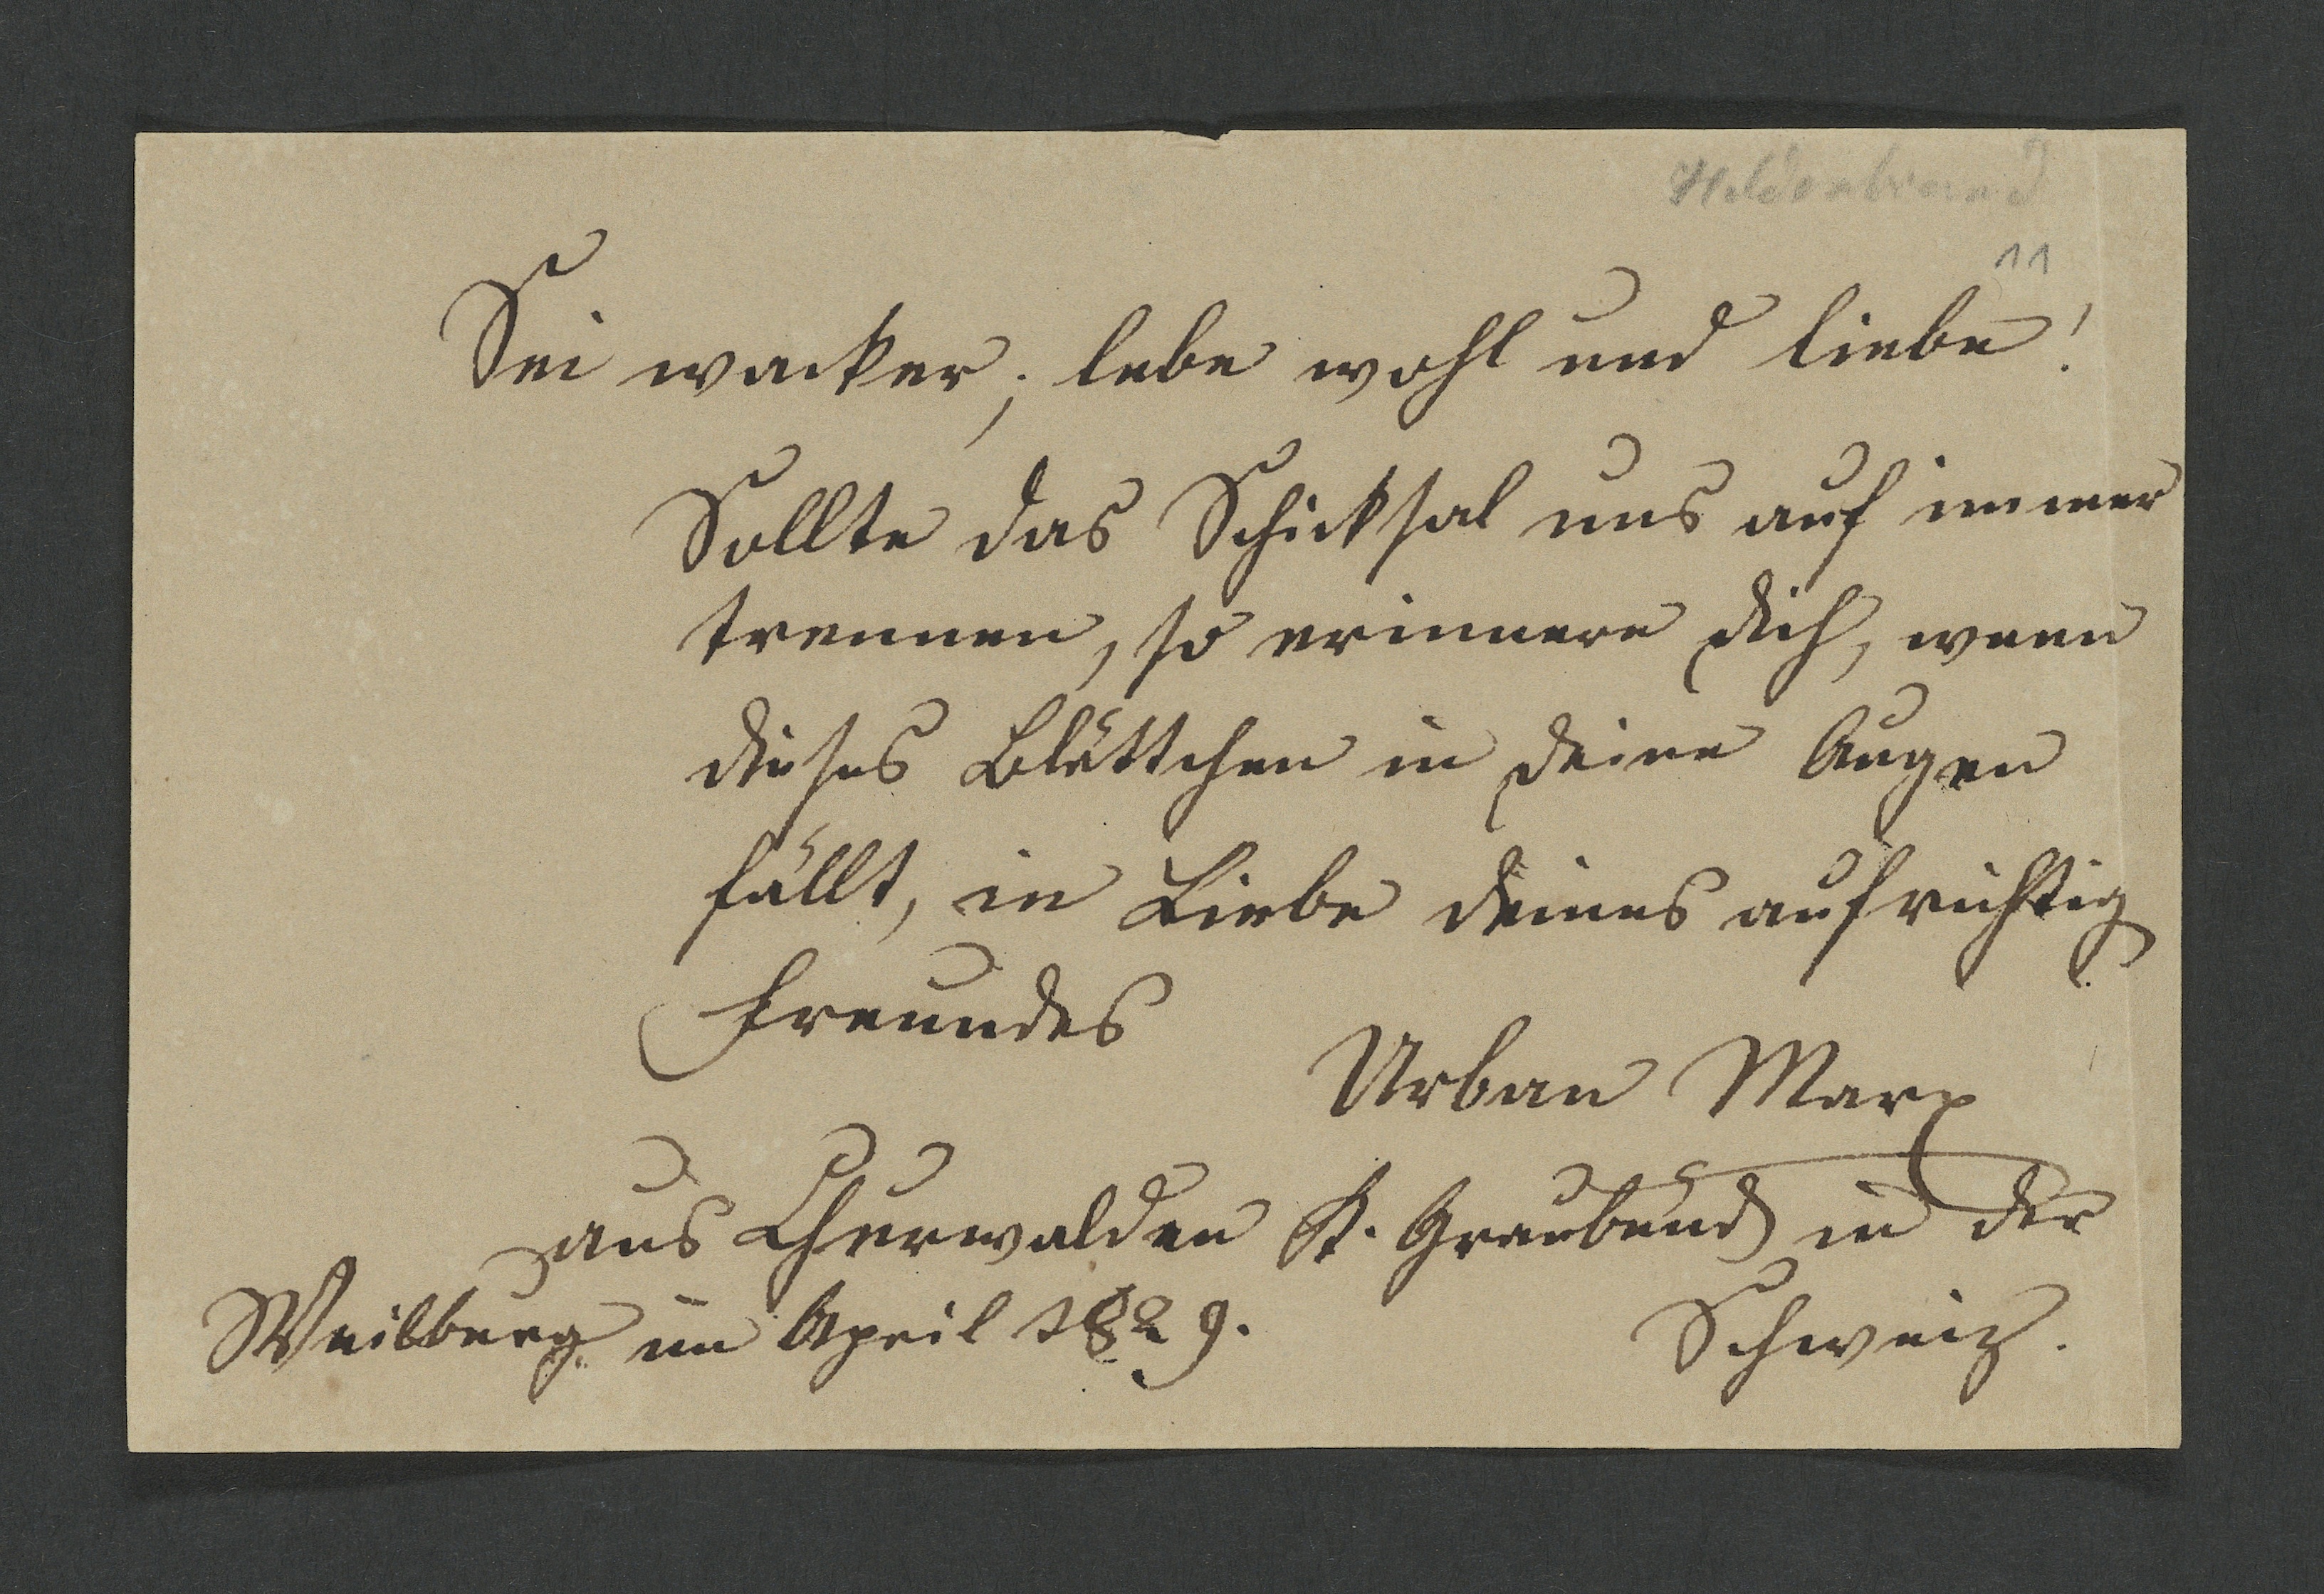 Hildenbrand
11
Sei wacker; lebe wohl und liebe!
Sollte das Schicksal uns auf immer
trennen, so erinnere dich, wenn
dieses Blättchen in deine Augen
fällt, in Liebe deines aufrichtig
Freundes
Urban Marx
aus Churwalden K. Graubünd in der
Weilburg im April 1829. Schweiz.